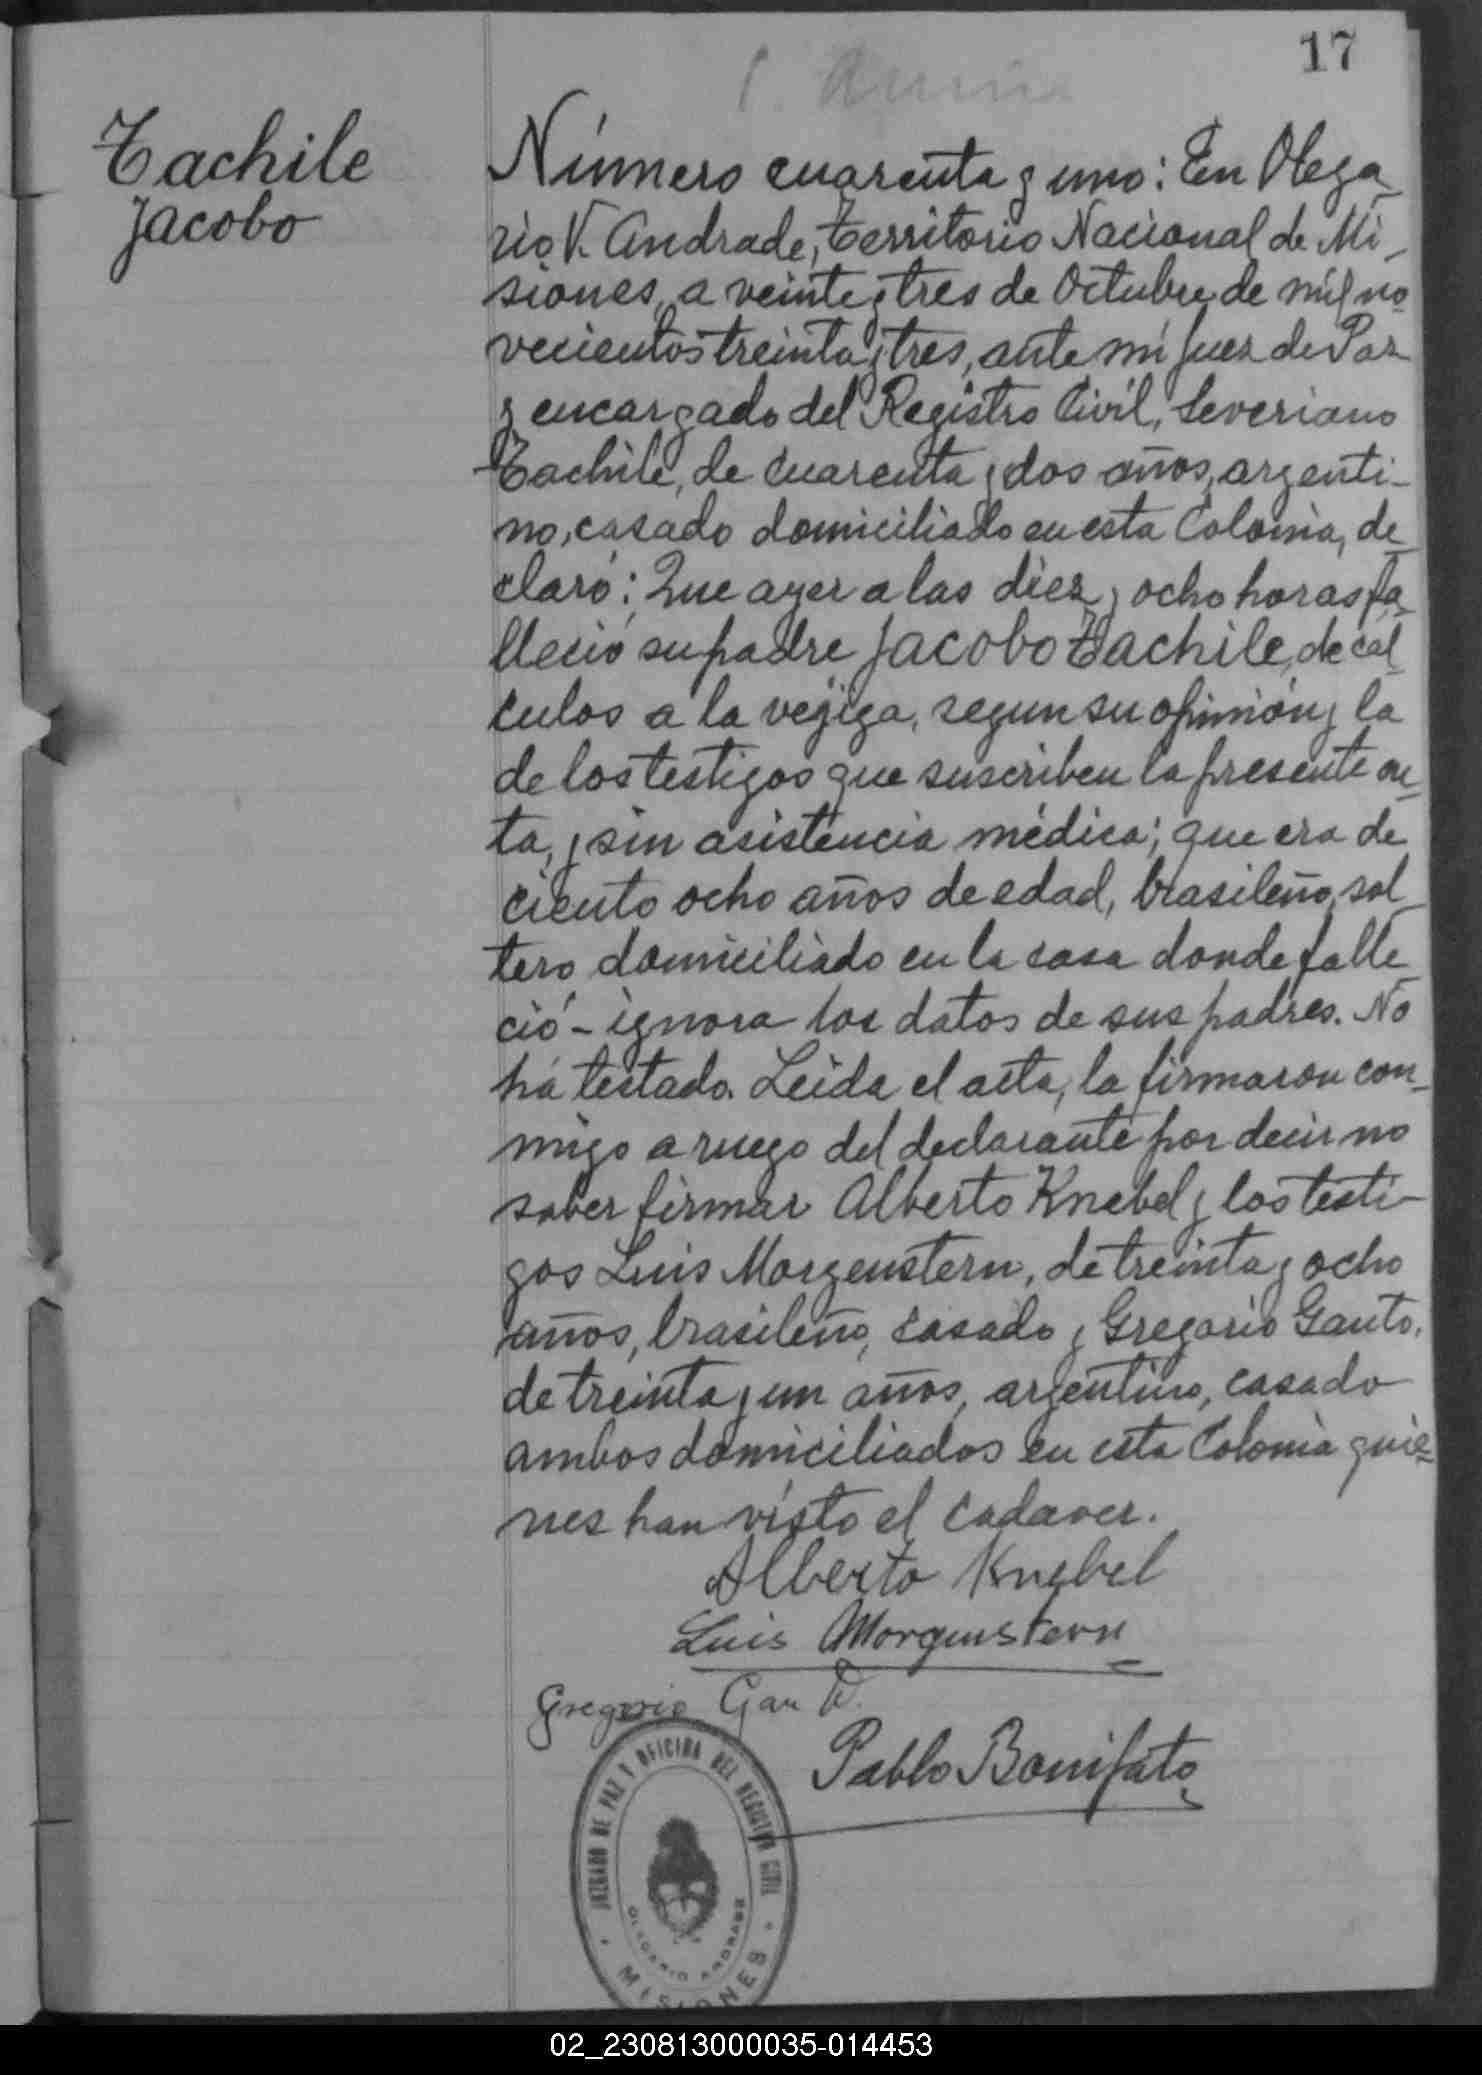 17
Tachile
Jacobo
Número cuarenta y uno: En Olega-
rio V. Andrade, Territorio Nacional de Mi-
siones, a veinte y tres de Octubre de mil no-
vecientos treinta y tres, ante mí Juez de Paz
y encargado del Registro Civil, Severiano
Tachile, de cuarenta y dos años, argenti-
no, casado domiciliado en esta Colonia, de-
claró: Que ayer a las diez y ocho horas fa-
lleció su padre Jacobo Tachile, de cál-
culos a la vejiga, segun su opinión y la
de los testigos que suscriben la presente ac-
ta, y sin asistencia médica; que era de
ciento ocho años de edad, brasileño, sol-
tero, domiciliado en la casa donde falle-
ció - ignora los datos de sus padres. No
há testado. Leida el acta, la firmaron con-
migo a ruego del declarante por decir no
saber firmar Alberto Knebel y los testi-
gos Luis Morgenstern, de treinta y ocho
años, brasileño, casado y Gregorio Gauto,
de treinta y un años, argentino, casado
ambos domiciliados en esta Colonia quie-
nes han visto el cadaver.
Alberto Knebel
Luis Morgenstern
Gregorio Gau
Pablo Bonifato
JUZGADO DE PAZ Y OFICINA DEL REGISTRO CIVIL
OLEGARIO ANDRADE
MISIONES
02_230813000035-014453